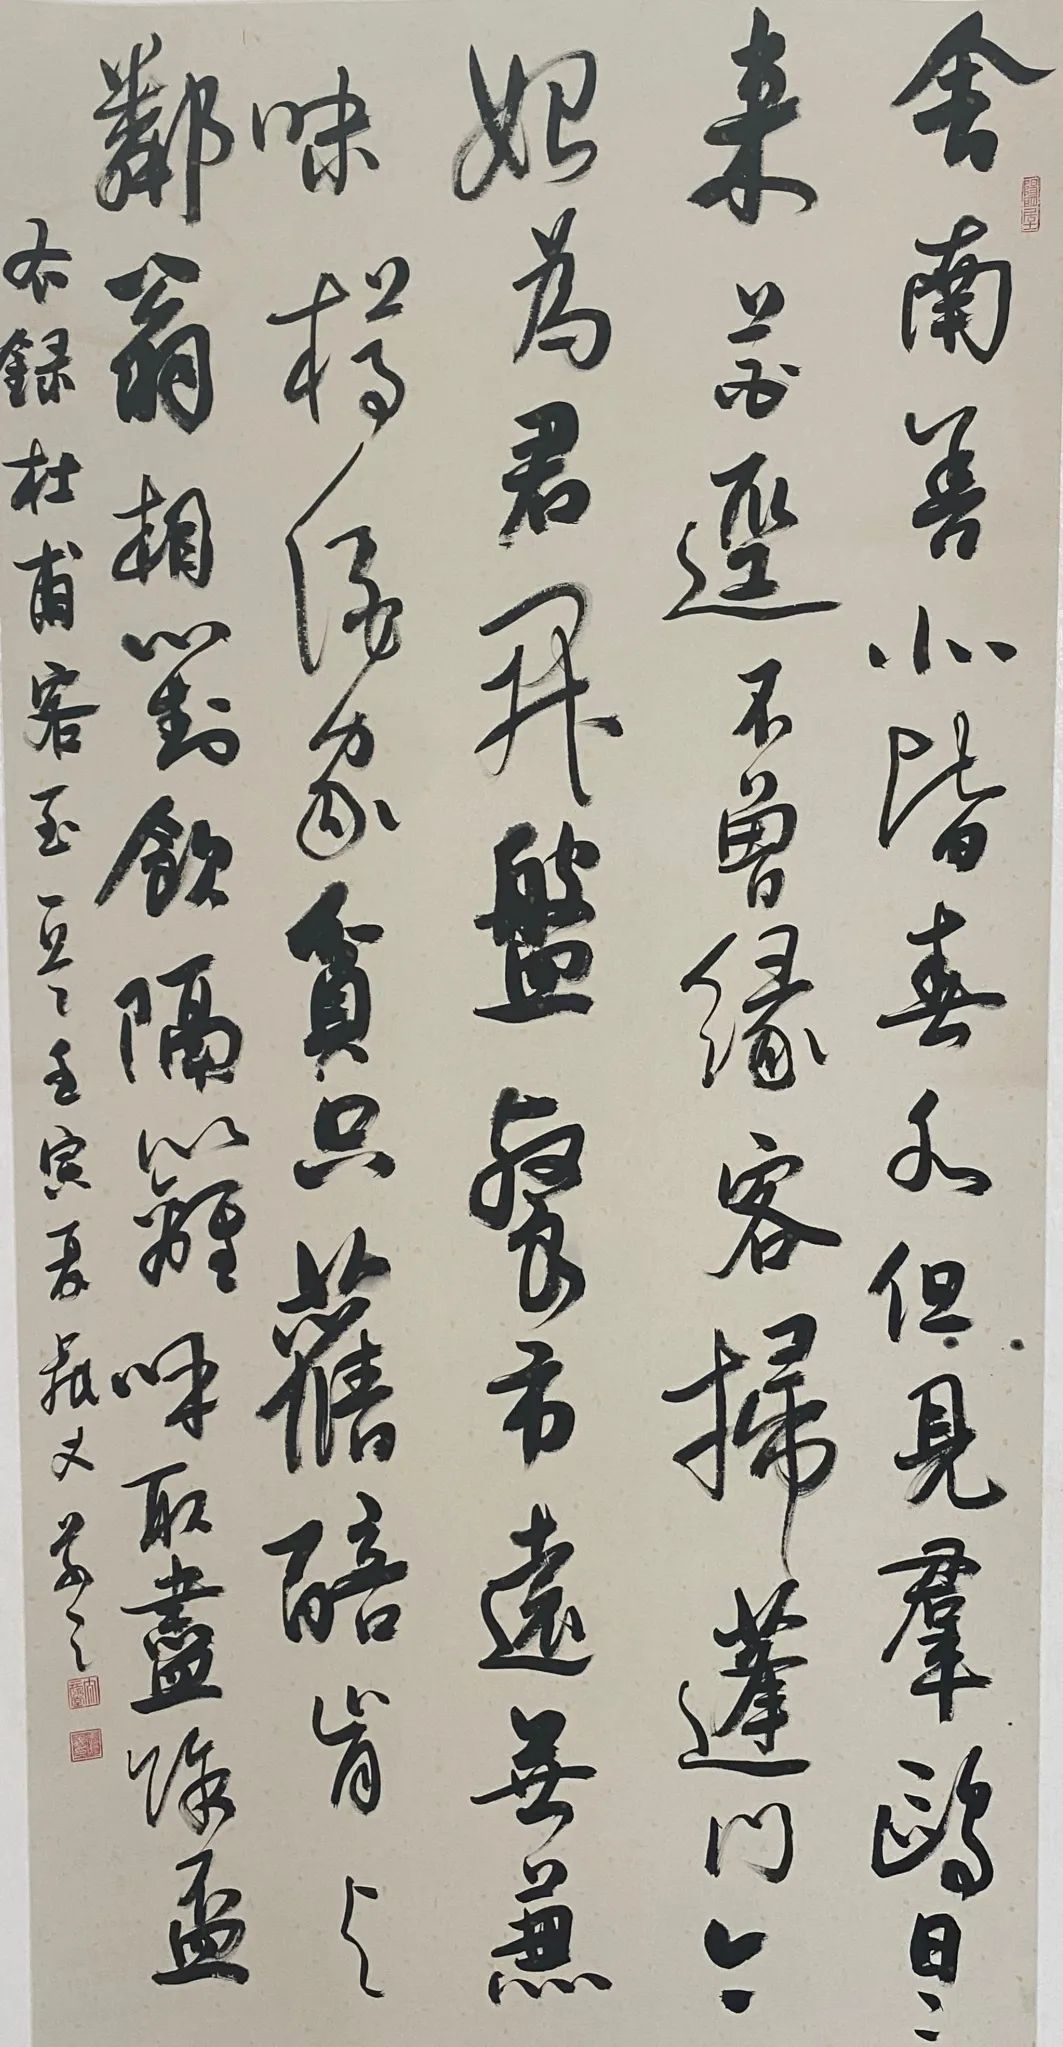 舍南舍北皆春水但見羣鷗日日
來花逕不曾緣客掃蓬門今
始為君開盤飧市遠無兼
味樽酒家貧只舊醅肯與
鄰翁相對飲隔籬呼取盡餘盃
右錄杜甫客至一首壬寅夏